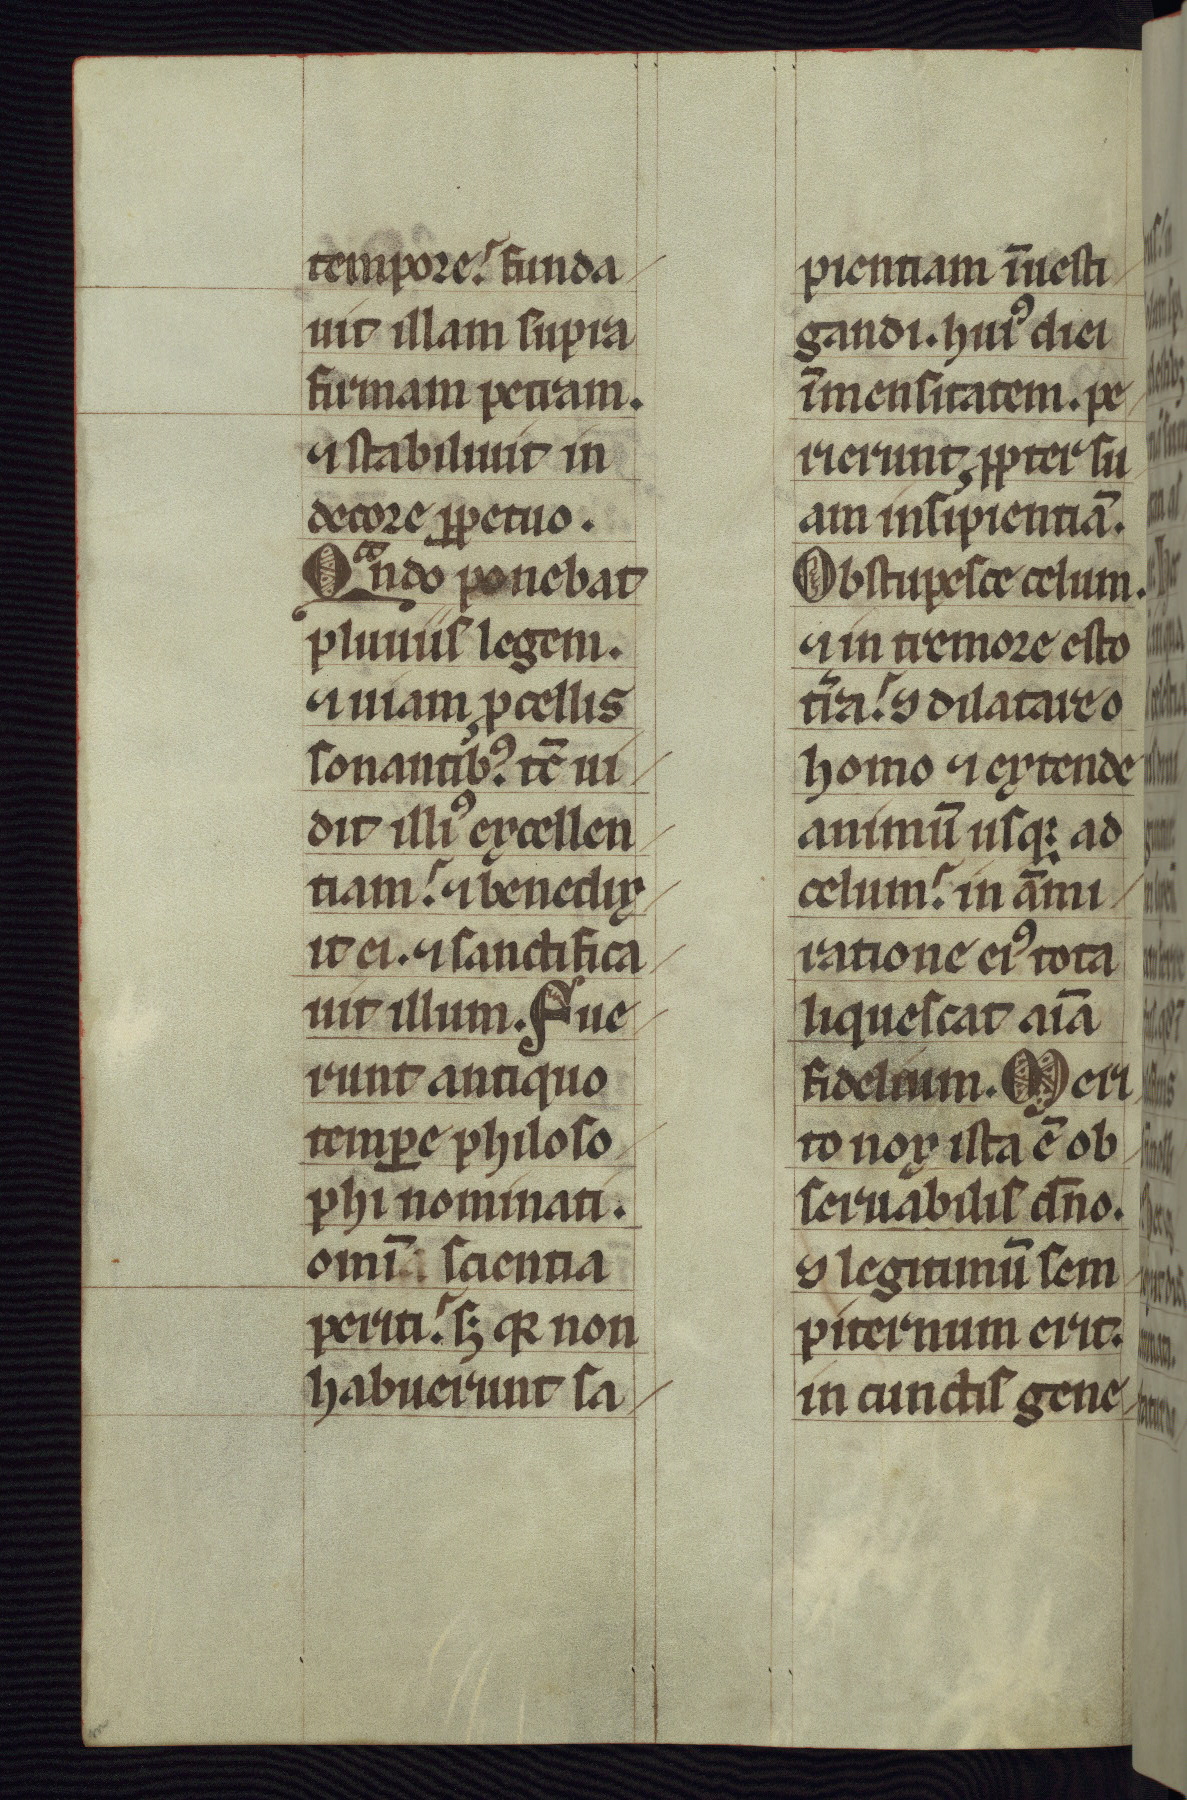 tempore. funda
uit illam supra
firmam petram.
⁊ stabiliuit in
decore ꝑpetuo.
Qᵃndo ponebat
pluuiis legem.
⁊ uiam ꝓcellis
sonantibꝰ. tc̄ ui
dit illiꝰ excellen
tiam. ⁊ benedix
it ei. ⁊ sanctifica
uit illum. Fue
runt antiquo
temꝑe philoso
phi nominati.
omī scientia
periti. sꝫ qꝛ non
habuerunt sa
pientiam īuesti
gandi. huiꝰ diei
īmensitatem. pe
rierunt ꝓpter su
am insipientiā.
Obstupesce celum.
⁊ in tremore esto
tr̄ra. ꝯ dilatare o
homo ⁊ extende
animū usqꝫ ad
celum. in āmi
ratione eiꝰ tota
liquescat aīa
fidelium. Meri
to nox ista ē ob
seruabilis dn̄o.
ꝯ legitimū sem
piternum erit.
in cunctis gene